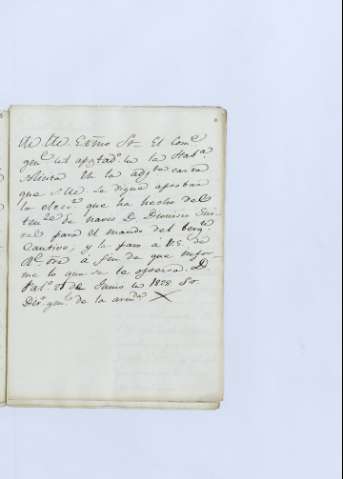 Exmo Sor El Comte
genl del apostado de la Haba
solicita en la adjta carta
que S.M. se digne aprobar
la elecn que ha hecho del
tente de navio D. Dionisio
para el mando del bergn
Cautivo, y la paso a V.E. de
Rl orn a fin de que infor-
me lo que se le ofrezca. D
Pal° de Junio de 1828 Sor
Dir genl de la armda